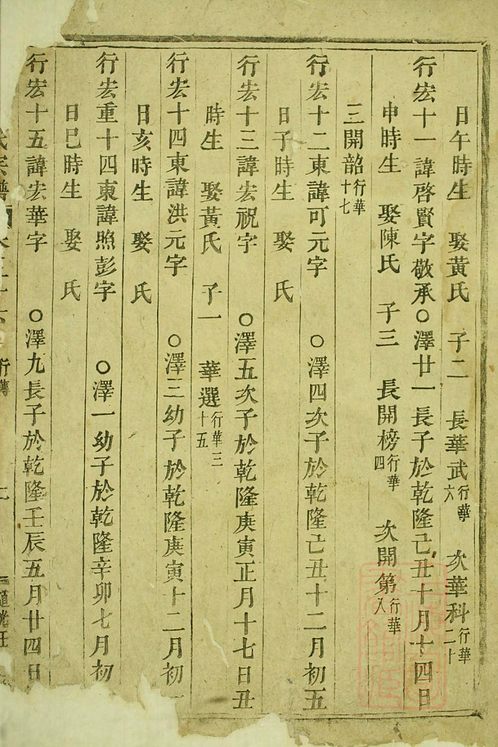 日午時生 娶黃氏 子二 長華武行華六 次華科行華二十
行宏十一諱啓賢字敬承○澤廿一長子於乾隆己丑十月十四日
申時生 娶陳氏 子三 長開榜行華四 次開第行華八
三開韶行華十七
行宏十二東諱可元字 ○澤四次子於乾隆己丑十二月初五
日子時生 娶 氏
行宏十三諱宏祝字 ○澤五次子於乾隆庚寅正月十七日丑
時生 娶黃氏 子一 華選行華三十五
行宏十四東諱洪元字 ○澤三幼子於乾隆庚寅十二月初
日亥時生 娶 氏
行宏重十四東諱照彭字 ○澤一幼子於乾隆辛卯七月初
日巳時生 娶 氏
行宏十五諱宏華字 ○澤九長子於乾隆壬辰五月廿四日
氏宗譜 行傳